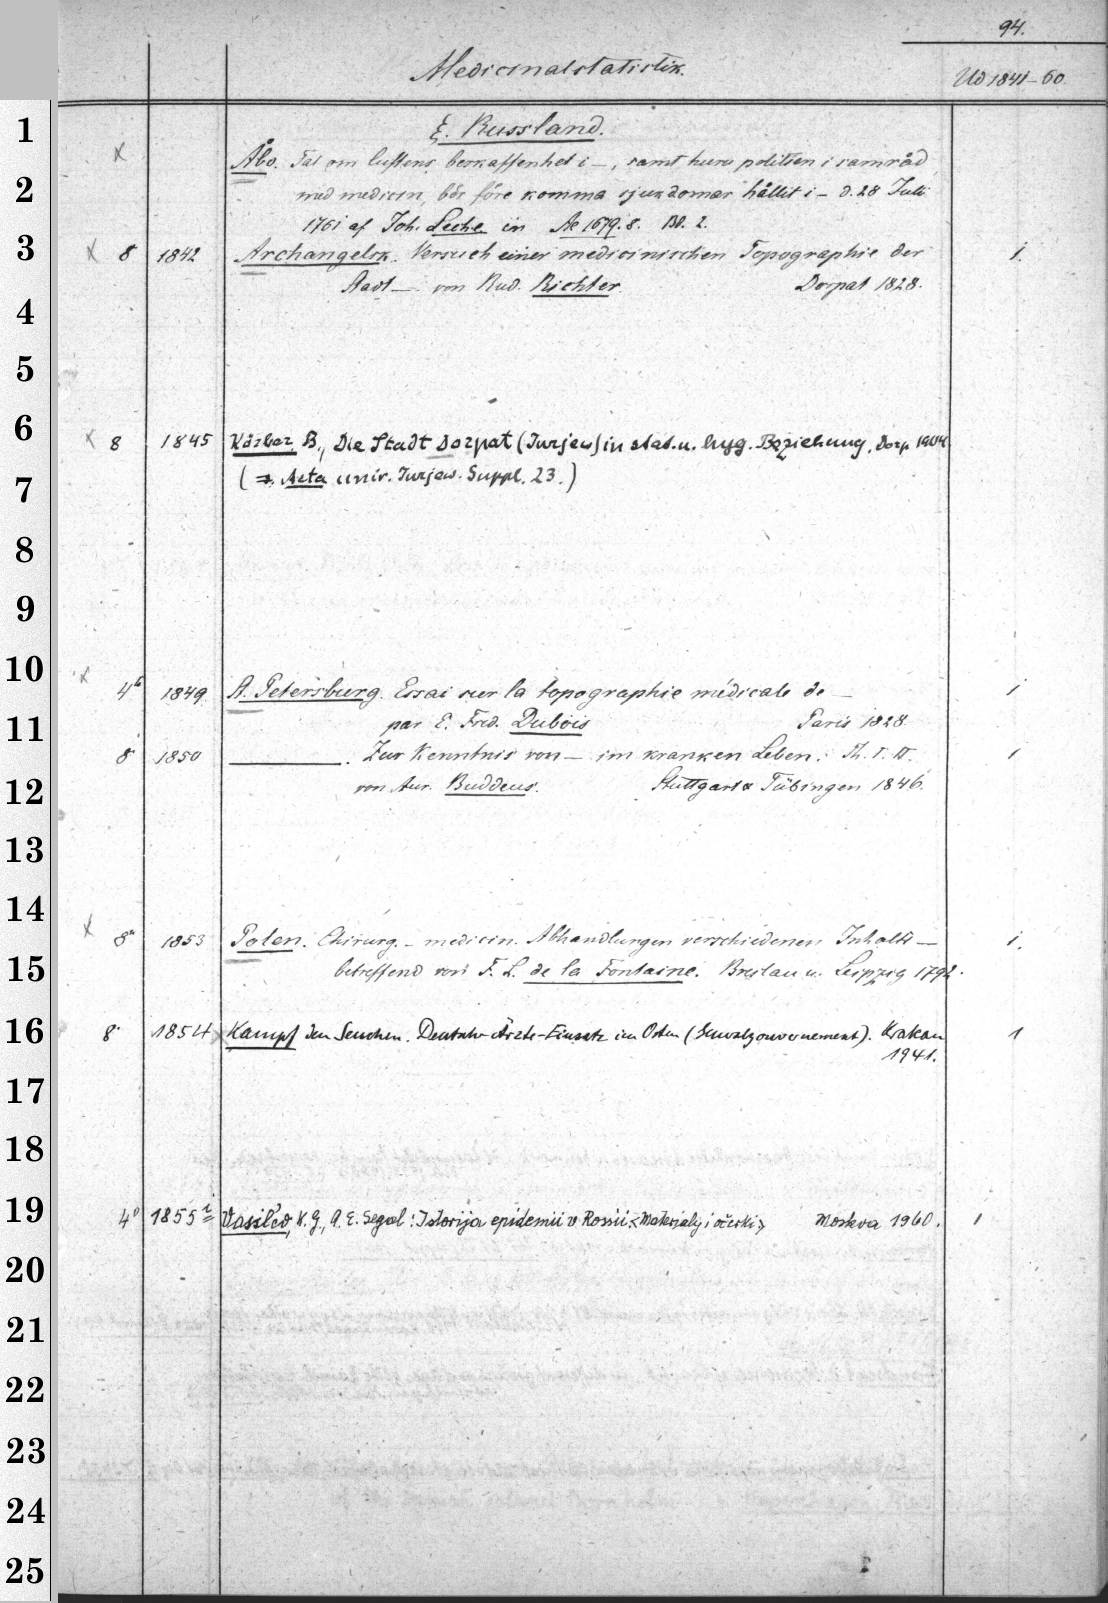 94.
Medicinalstatistik.
Ud 1841–60
ξ. Russland.
X
Åbo. Tal om luftens beskaffenhet i —, samt huru politien i samråd
med medicin, bör före komma sjukdomar hållit i – d. 28 Juli
1761 af Joh. Leche in Ae 1679. 8. Bd. 2.
X 8 1842 Archangelsk. Versuch einer medicinischen Topographie der 1.
Stadt — von Rud. Richter. Dorpat 1828.
X 8 1845 Körber, B., Die Stadt Dorpat (Jurjew) in stat. u. hyg. Beziehung. Dorp. 1904
(= Acta univ. Jurjew. Suppl. 23.)
X 4° 1849 St. Petersburg. Essai sur la topographie médicale de — 1
par E. Fréd. Dubois Paris 1828.
8 1850 ———. Zur Kenntnis von — im kranken Leben: Th. I. II. 1
von Aur. Buddeus. Stuttgart & Tübingen 1846.
X 8° 1853 Polen. Chirurg. – medicin. Abhandlungen verschiedenen Inhalts — 1.
betreffend von F. L. de la Fontaine. Breslau u. Leipzig 1792.
8° 1854 Kampf den Seuchen. Deutscher Ärzte-Einsatz im Osten (Generalgouvernement). Krakau 1
1941.
4° 1855 i Vasil'ev, K. G., A. E. Segal: Istorija epidemii v Rossii <Materialy i očerki> Moskva 1960. 1
1
2
3
4
5
6
7
8
9
10
11
12
13
14
15
16
17
18
19
20
21
22
23
24
25